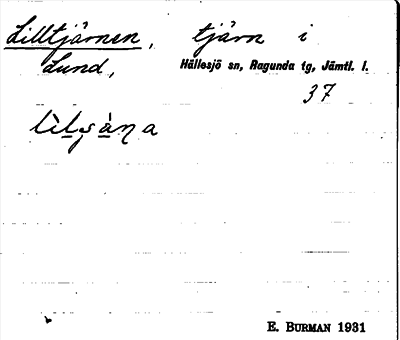 Lilltjärnen, tjärn i
Lund, Hällesjö sn, Ragunda tg, Jämtl. l.
37
E. BURMAN 1931